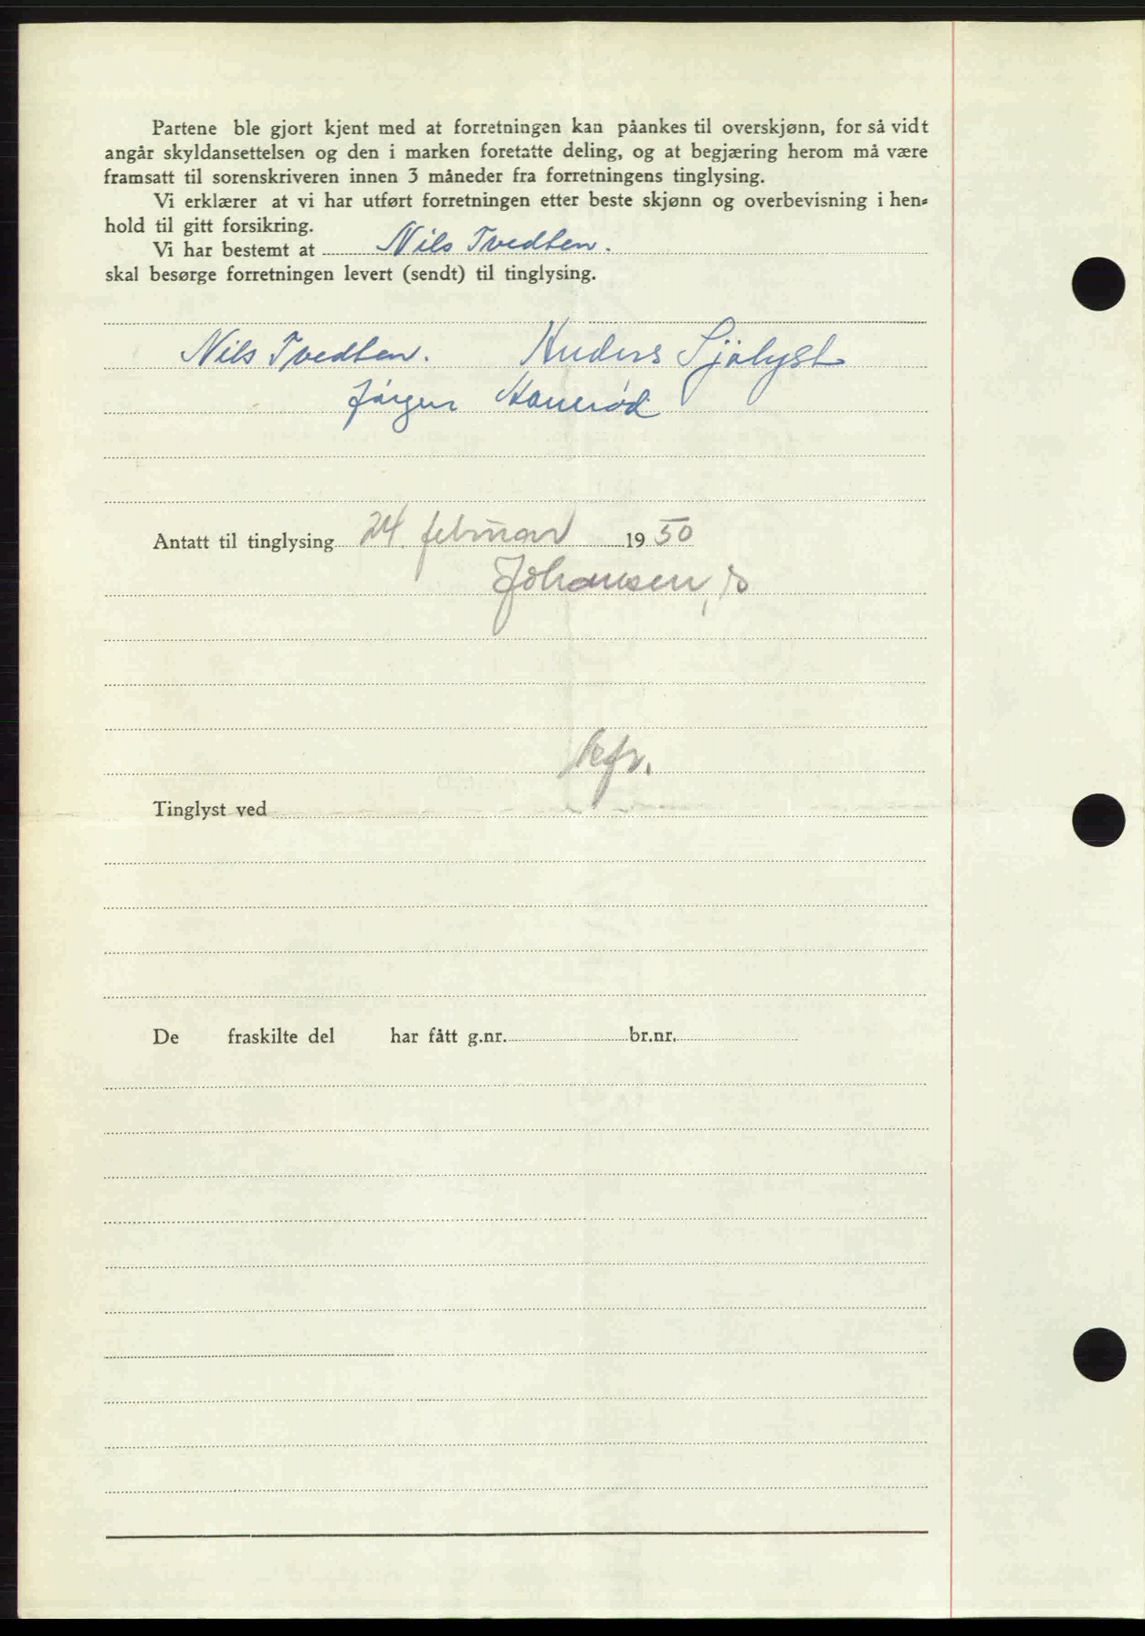 Partene ble gjort kjent med at forretningen kan påankes til overskjønn, for så vidt
angår skyldansettelsen og den i marken foretatte deling, og at begjæring herom må være
framsatt til sorenskriveren innen 3 måneder fra forretningens tinglysing.
Vi erklærer at vi har utført forretningen etter beste skjønn og overbevisning i hen-
hold til gitt forsikring.
Vi har bestemt at Nils Tvedten.
skal besørge forretningen levert (sendt) til tinglysing.
Nils Tvedten. Anders Sjølyst
Jørgen
Antatt til tinglysing 24. februar 1950
Johansen
Tinglyst ved
De fraskilte del har fått g.nr. br.nr.